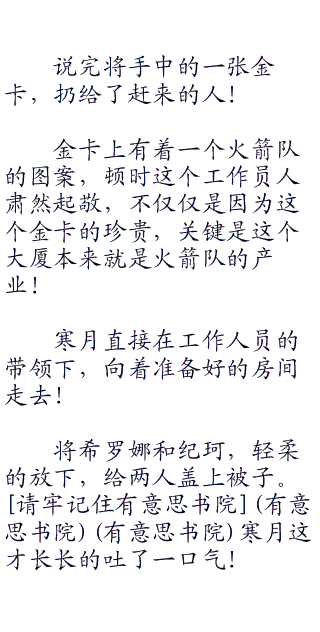 说完将手中的一张金
卡，扔给了赶来的人！
金卡上有着一个火箭队
的图案，顿时这个工作员人
肃然起敬，不仅仅是因为这
个金卡的珍贵，关键是这个
大厦本来就是火箭队的产
业！
寒月直接在工作人员的
带领下，向着准备好的房间
走去！
将希罗娜和纪珂，轻柔
的放下，给两人盖上被子。
[请牢记住有意思书院] (有意
思书院) (有意思书院) 寒月这
才长长的吐了一口气！